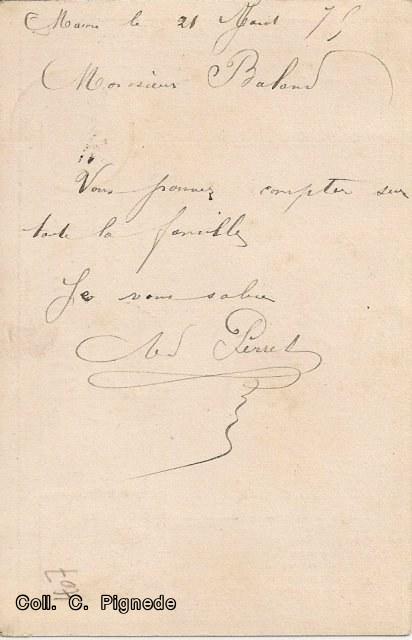 le 21 75
Monsieur Baland
Vous pouvez compter sur
toute la famille
Je vous salue
Perret
Coll. C. Pignede